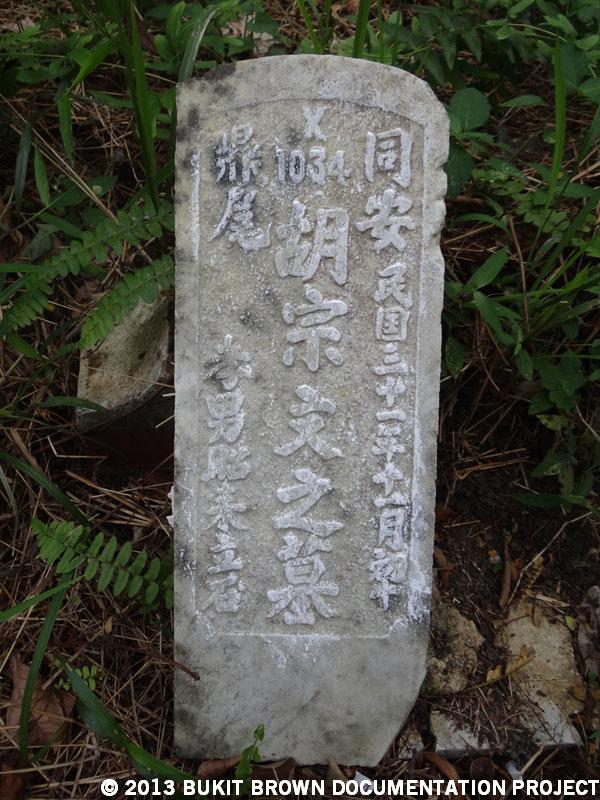 同安
民国三十一年十一月初十
X
1034
胡宗文之墓
鼎尾
孝男昭来立石
© 2013 BUKIT BROWN DOCUMENTATION PROJECT